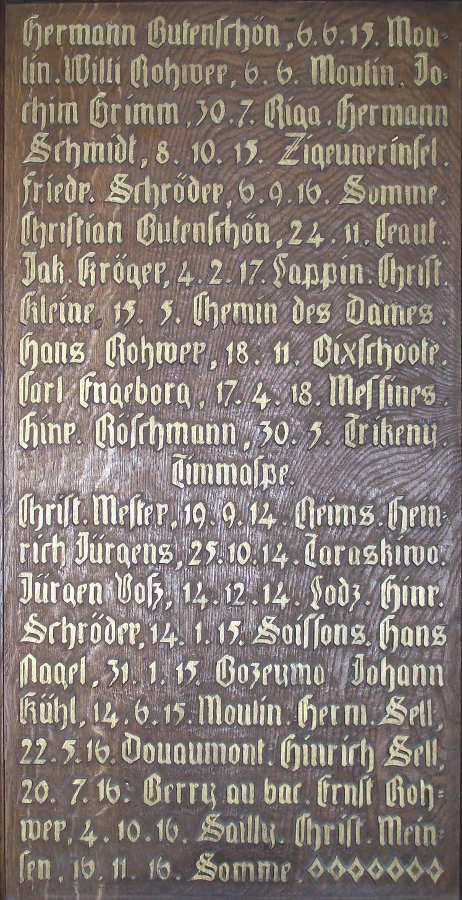 Hermann Butenschön, 6. 6. 15. Mou-
lin. Willi Rohwer, 6. 6. Moulin. Jo-
chim Grimm, 30. 7. Riga. Hermann
Schmidt, 8. 10. 15. Zigeunerinsel.
Friedr. Schröder, 6. 9. 16. Somme.
Christian Butenschön, 24. 11. Ceaut.
Jak. Kröger, 4. 2. 17. Lappin. Christ.
Kleine, 15. 5. Chemin des Dames.
Hans Rohwer, 18. 11. Bixschoote.
Carl Engeborg, 17. 4. 18. Messines.
Hinr. Röschmann, 30. 5. Trikeny.
Timmaspe.
Christ. Mester, 19. 9. 14. Reims. Hein-
rich Jürgens, 25. 10. 14. Taraskiwo.
Jürgen Voß, 14. 12. 14. Lodz. Hinr.
Schröder, 14. 1. 15. Soissons. Hans
Nagel, 31. 1. 15. Bozeymo. Johann
Kühl, 14. 6. 15. Moulin. Herm. Sell,
22. 5. 16. Douaumont. Hinrich Sell,
20. 7. 16. Berry au bac. Ernst Roh-
wer, 4. 10. 16. Sailly. Christ. Mein-
sen, 16. 11. 16. Somme.